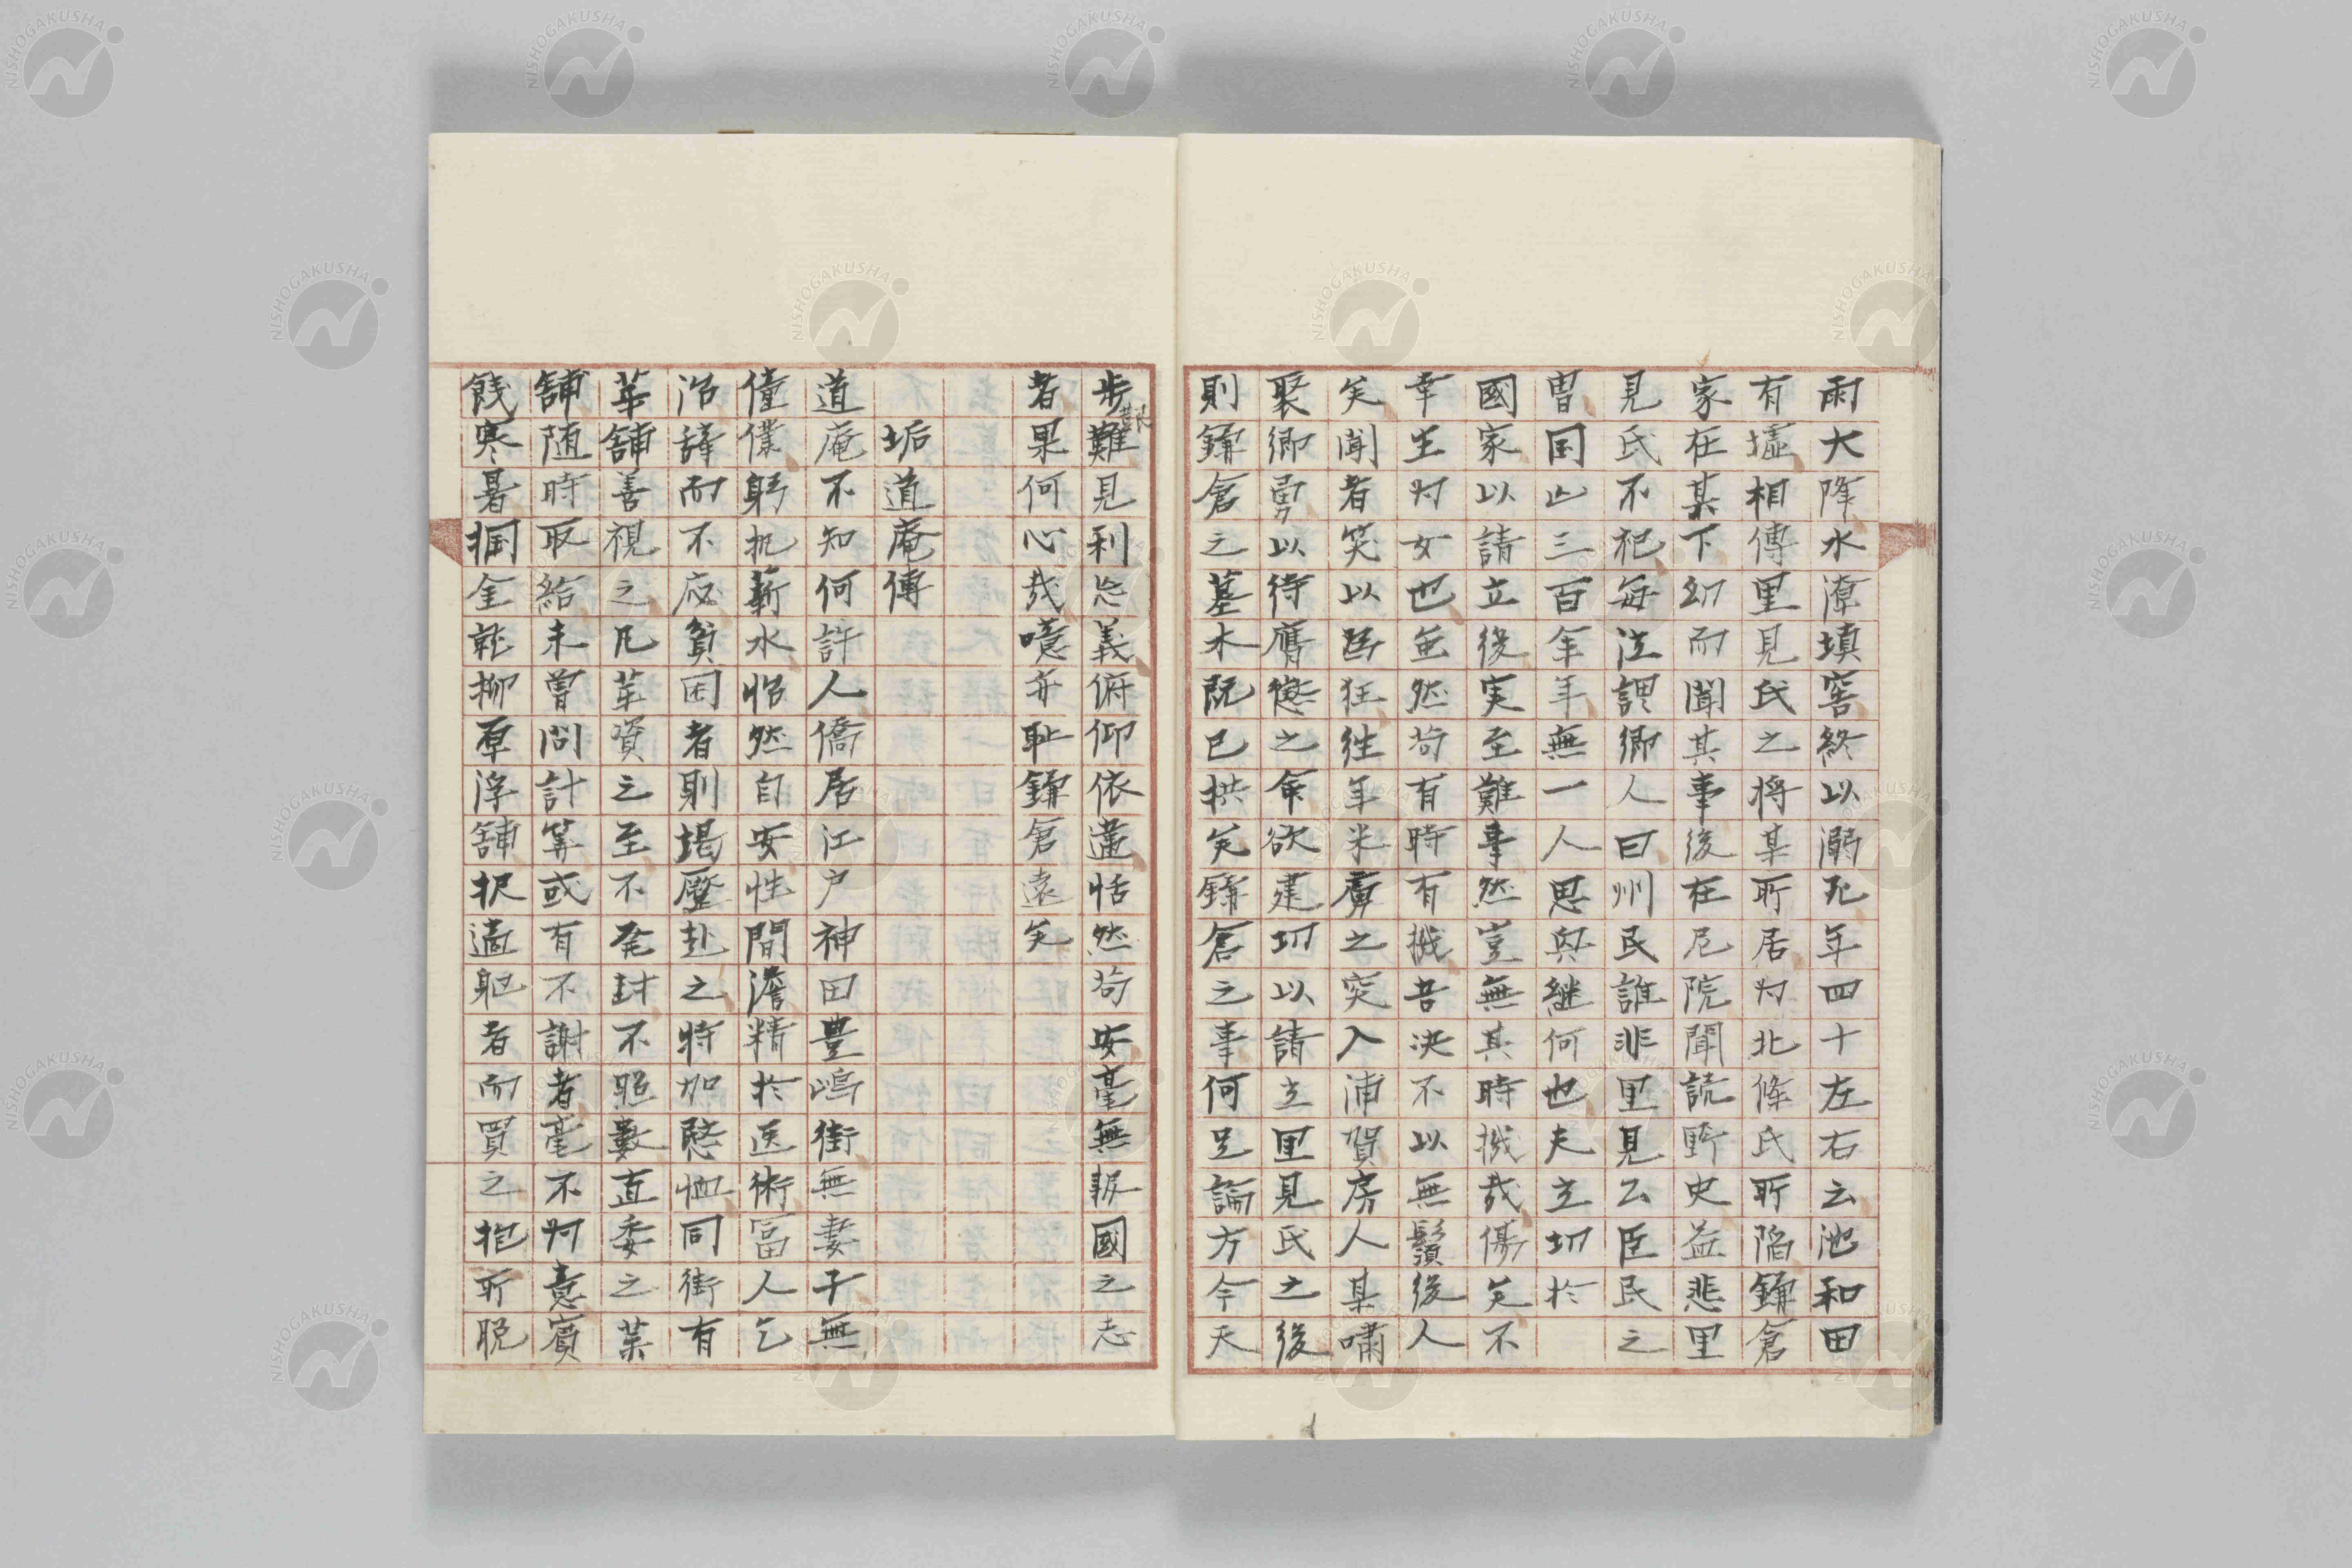 雨大降水潦填窖終以溺死年四十左右云池和田
有墟相傳里見氏之将某所居為北條氏所陷鎌倉
家在某下幼而聞其事後在尼院聞読野史益悲里
見氏不祀每泣謂鄉人曰州民誰非里見公臣民之
曹国亡三百年年無一人思興継何也夫立切於
國家以請立後実至難事然豈無其時機哉傷矣不
幸生为女也虽然苟有時有機吾決不以無鬚後人
矣聞者笑以為狂往年米虜之突入浦賀房人某嘯
聚鄉勇以待膺懲之命欲建切以請立里見氏之後
則鎌倉之墓木既已拱矣鎌倉之事何足論方今天
步艱難見利忘義俯仰依違恬然苟安毫無報國之志
者果何心哉噫亦耻鎌倉遠矣
垢道庵傳
道庵不知何許人僑居江户神田豊嶋街無妻子無
僮僕躬执薪水恬然自安性間澹精於医術富人乞
治辞而不应貧困者則竭蹙赴之特加愍恤同街有
革舖善視之凡革資之至不発封不照數直委之葉
舖随時取給未曽问計算或有不謝者毫不为意賓
餞寒暑掴金乾柳原浮舖択適躯者而買之抱所脱
NISHOGAKUSHA